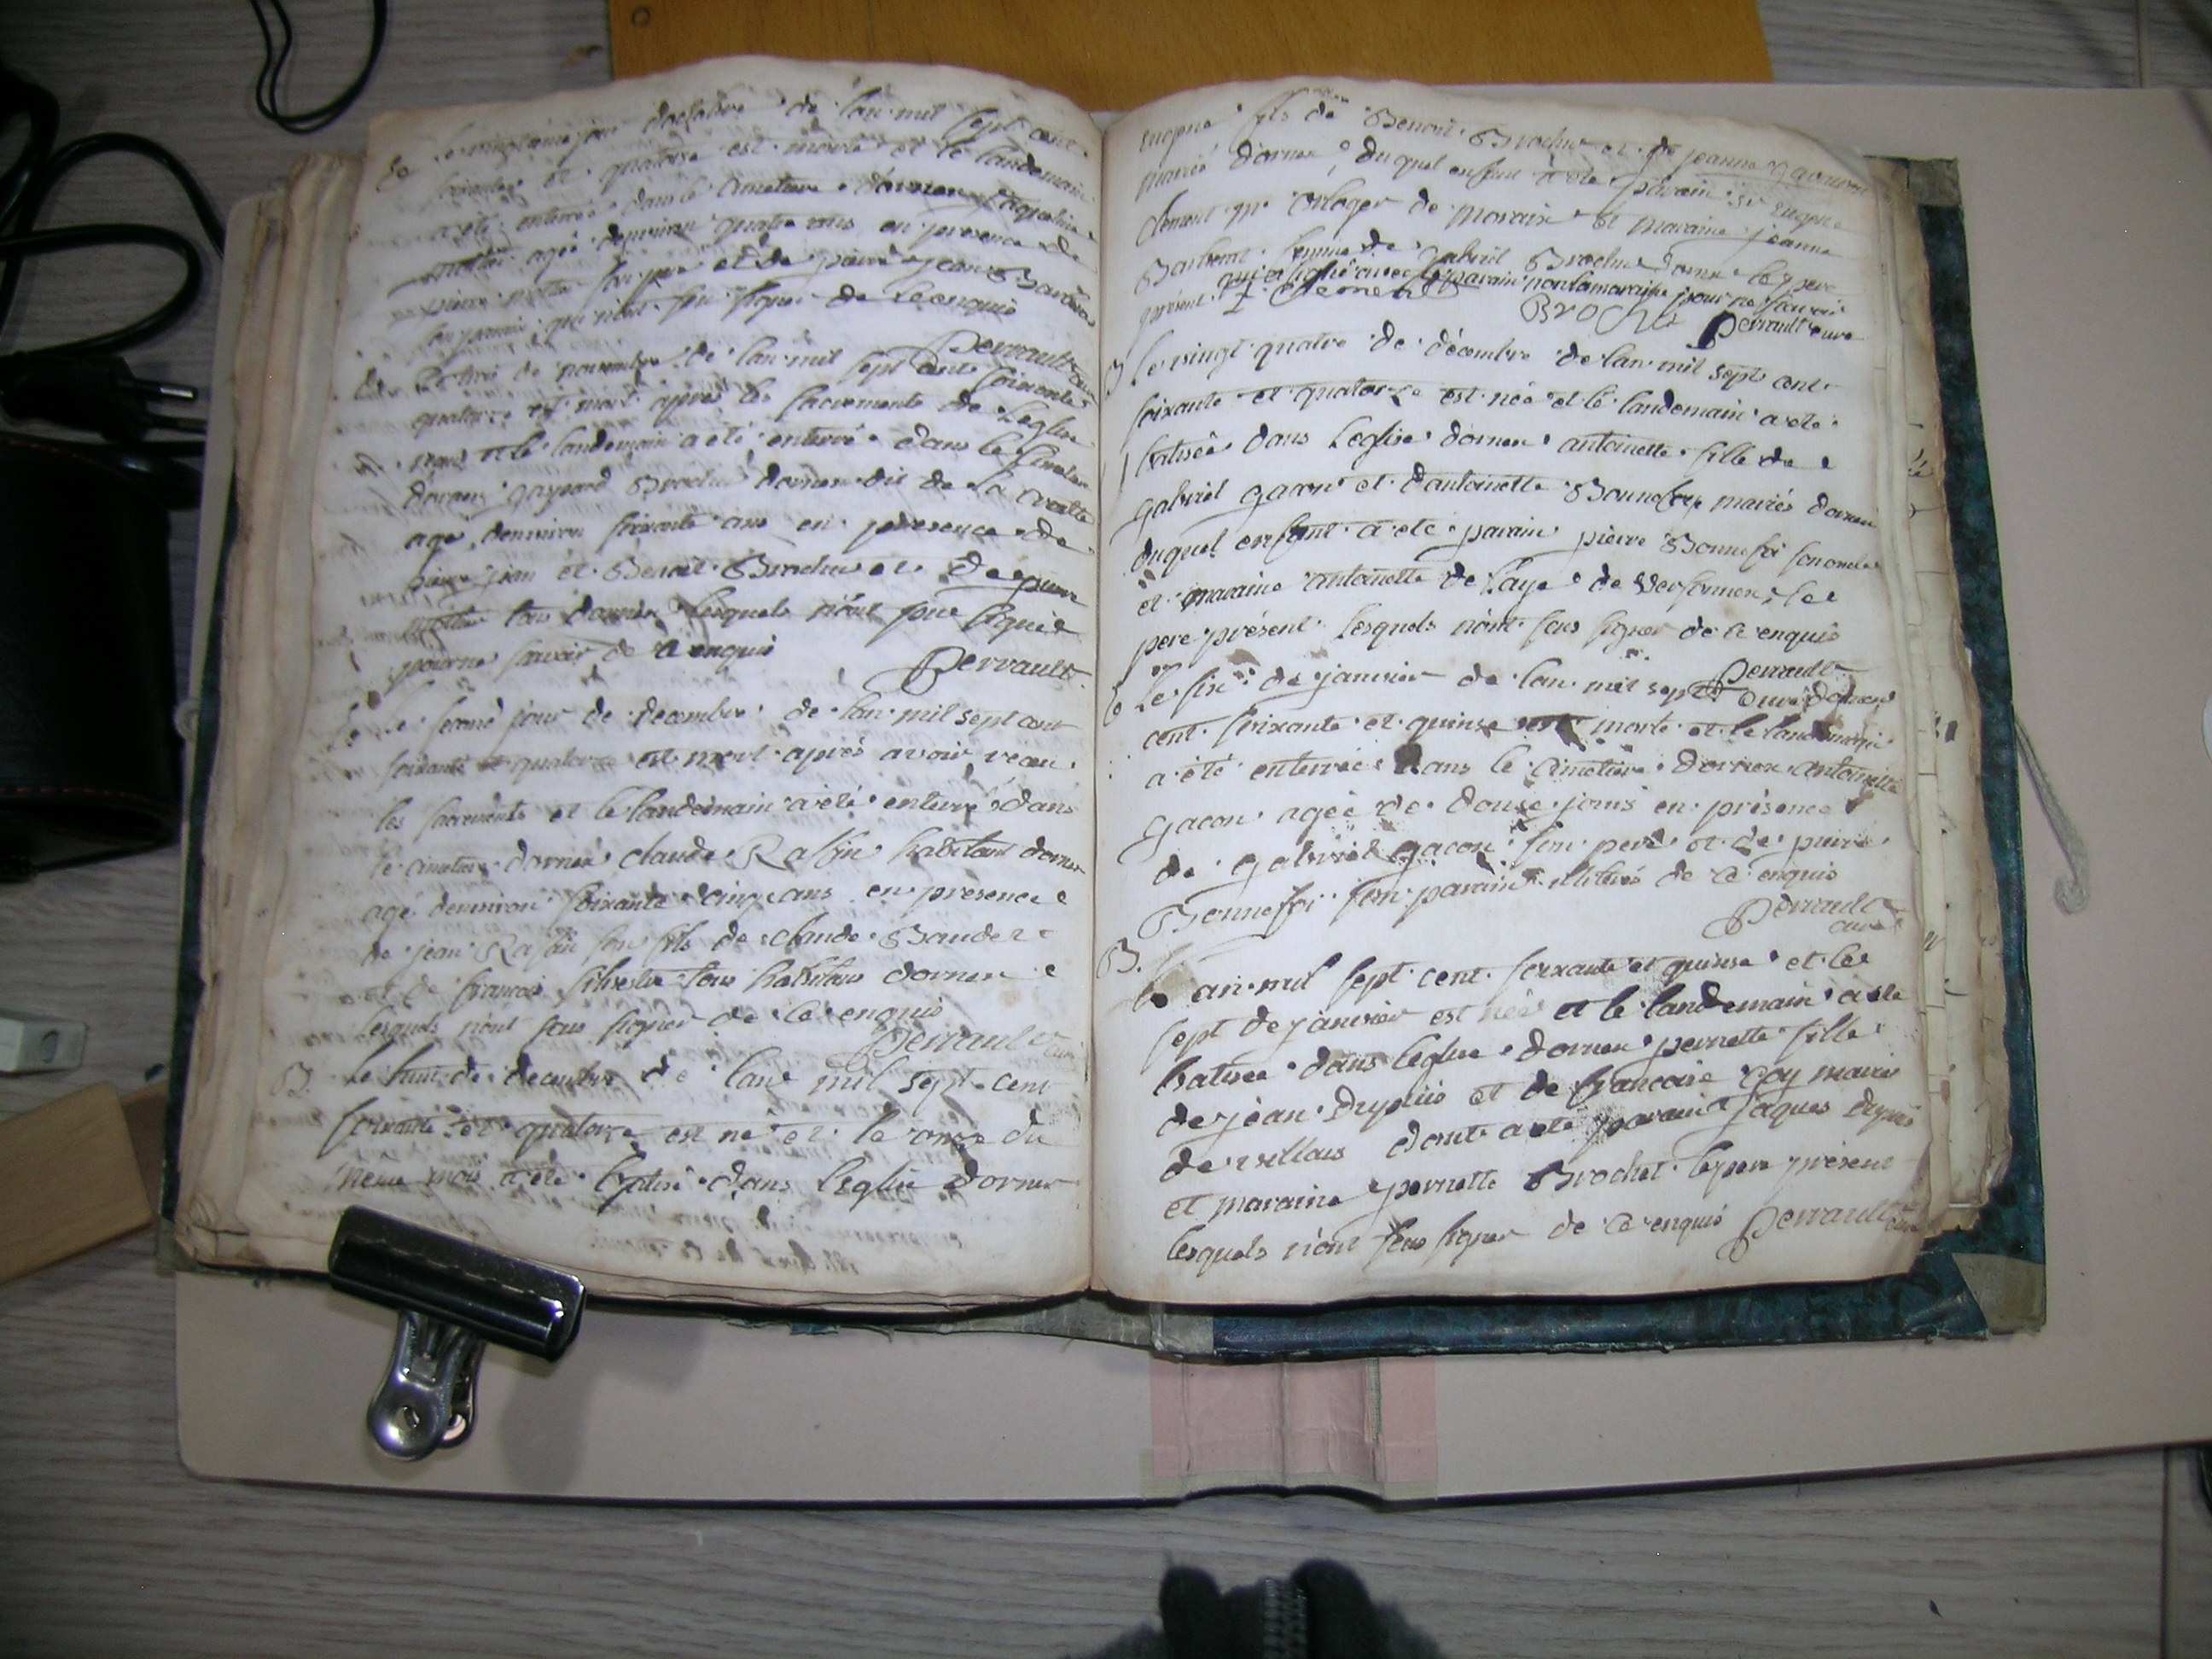 de jour doctobre de lan mil sept cent
soixante et quatorse est morte et le landemain
a eté enterrée dans le cimetiere dornex
agée denviron quatre ans en presence de
pierre son pere et de pierre jean
son parain qui n'ont signer de ce enquis
Perrault
de novembre de lan mil sept cent soixante
quatorze est mort après les sacrements de Leglise
et le landemain a eté enterré dans le cimetiere
dornex gaspard Brochet dornex dit de la
agé denviron soixante ans en presence de
pierre jean et Benoit Brochet et de pierre
tous dornex lesquels n'ont pas signé
pour ne savoir de ce enquis
Perrault
Le second jour de decembre de lan mil sept cent
soixante et quatorze est mort après avoir recu
les sacrements et le landemain a eté enterré dans
le cimetiere dornex claude habitant dornex
agé denviron soixante cinq ans en présence
de jean son fils de claude
et de francois silvestre tous habitans dornex
lesquels n'ont sous signer de ce enquis
Perrault
B. Le huit de decembre de lan mil sept cent
soixante et quatorze est né et le onze du
même mois a eté batisé dans leglise dornex
eugene fils de Benoit Brochet et de jeanne
mariés dornex, duquel enfant a eté parain sr eugene
clement me orloger de moraix et maraine jeanne
femme de gabriel Brochet dornex le pere
présent qui a signé avec le parain non la maraine pour ne savoir
Clement
BROChet Perrault curé
B Le vingt quatre de décembre de lan mil sept cent
soixante et quatorze est née et le landemain a eté
batisée dans Leglise dornex antoinette fille de
gabriel gacon et dantoinette Bonnefoy mariés dornex
duquel enfant a eté parain pierre Bonnefoi son oncle
et maraine antoinette de Laye de le
pere présent lesquels n'ont sous signer de ce enquis
Perrault
curé dornex
Le six de janvier de lan mil sept
cent soixante et quinse est morte et le landemain
a été enterrée dans le cimetiere dornex antoinette
gacon agée de douse jours en présence
de gabriel gacon son pere et de pierre
Bonnefoi son parain illiterés de ce enquis
Perrault
curé
B. Lan mil sept cent soixante et quinse et le
sept de janvier est née et le landemain a eté
batisée dans leglise dornex pernette fille
de jean Dupuis et de francoise mariés
de villars dont a eté parain jaques Dupuis
et maraine pernette Brochet le pere présent
lesquels n'ont sous signer de ce enquis Perrault curé